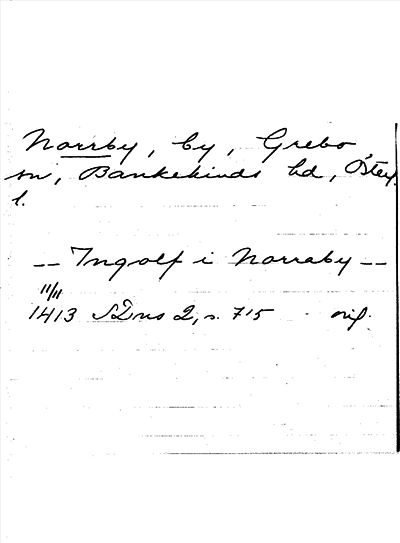 Norrby, by, Grebo
sn, Bankekinds hd, Östg.
l.
-- Ingolf i Norraby --
11/11
1413 SDns 2, s. 715 orig.